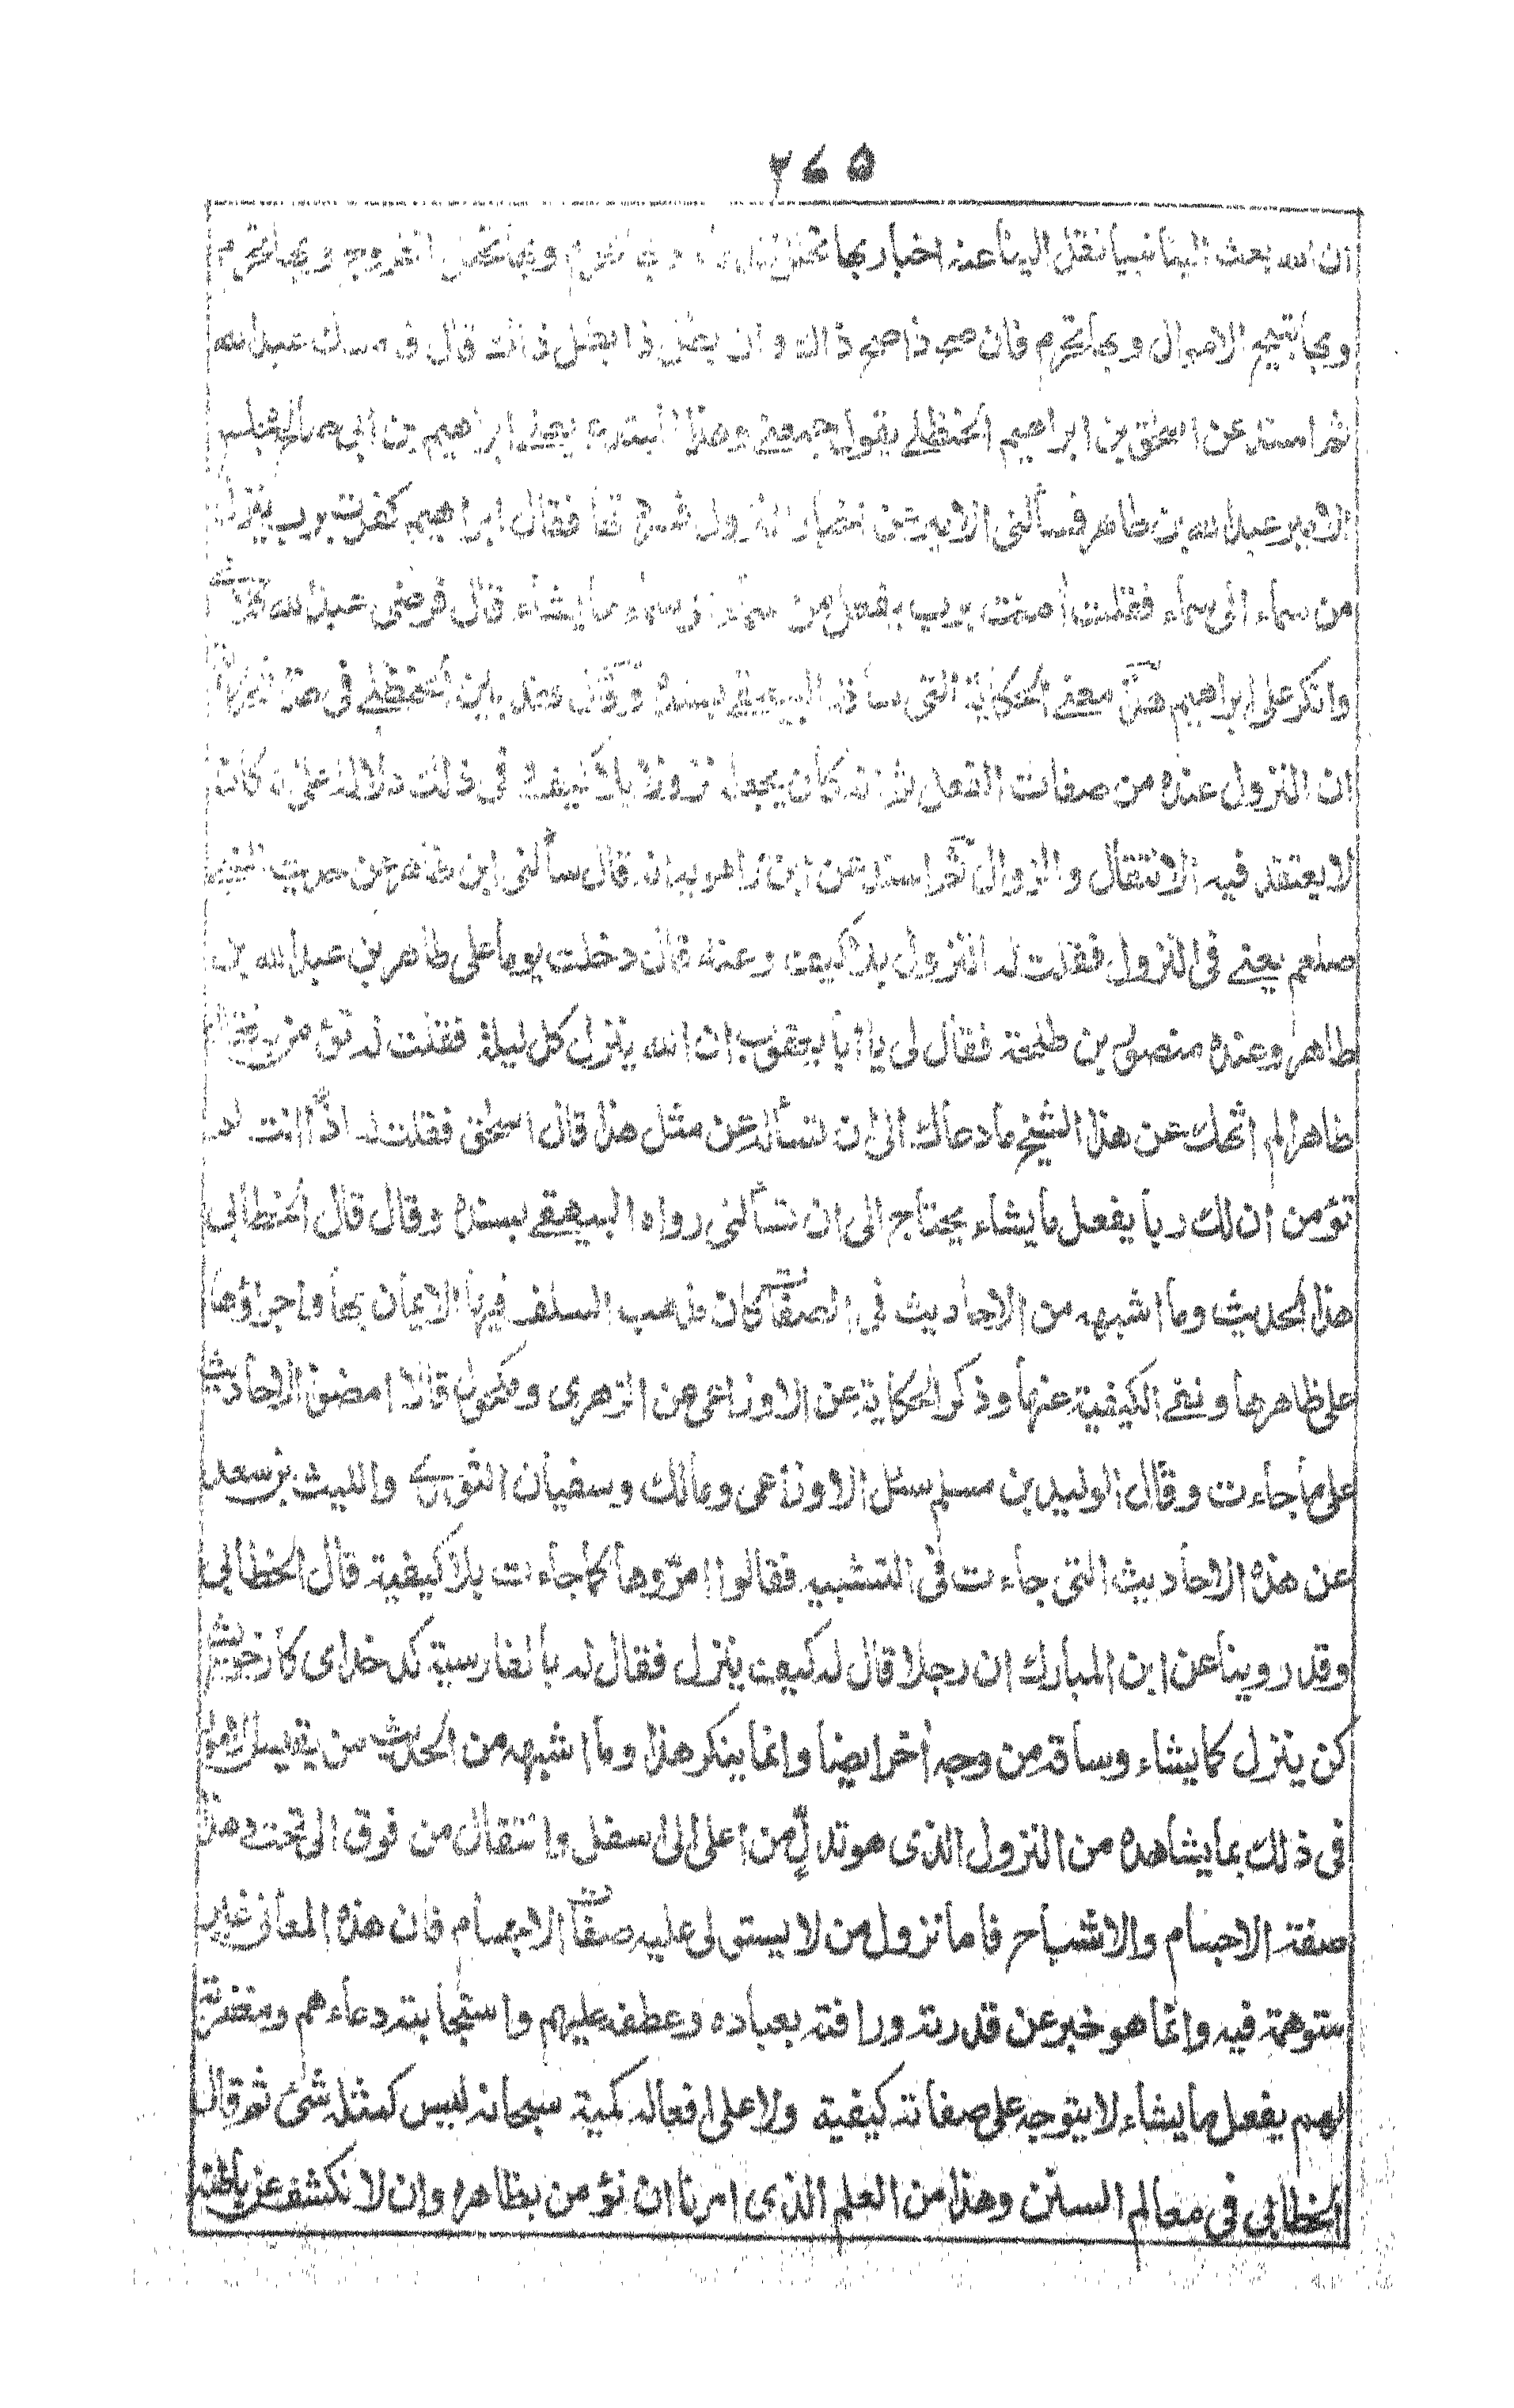 ٢٦٥
ان الله بعث الينا نبيا نقل الينا عنه اخبار بها تحلل الدماء وبها تحرم وبها تحلل الفروج وبها تحرم
وبها تبيح الاموال وبها تحرم فان صح ذا صح ذاك وان بطل ذا بطل ذاك قال فامسك عبد الله
ثم اسند عن اسحق بن ابراهيم الحنظلي يقول جمعني وهذا المبتدع يعني ابراهيم بن ابي صالح مجلس
الامير عبد الله بن طاهر فسألني الامير عن اخبار النزول فسردتها فقال ابراهيم كفرت برب ينزل
من سماء الى سماء فقلت أمنت برب يفعل ما يشاء قال فرضى عبد الله كلامي
وانكر على ابراهيم هذا معنى الحكاية التي ساقه البيهقي بسنده وقال فقد بين الحنظلي في هذا
ان النزول عنده من صفات الفعل ثم انه كان يجعله نزولا بلا كيف في ذلك دلالة على انه كان
لا يعتقد فيه الانتقال والزوال ثم اسند عن ابن راهويه انه قال سألني ابن طاهر عن حديث النبي
صلعم يعني في النزول فقلت له النزول بلا كيف وعنه قال دخلت يوما على طاهر بن عبد الله بن
طاهر وعنده منصور بن طلحة فقال لي يا أبا يعقوب ان الله ينزل كل ليلة فقلت له تؤمن به فقال
طاهر الم انهك عن هذا الشيخ ما دعاك الى ان تسأله عن مثل هذا قال اسحق فقلت له اذا انت لم
تؤمن ان لك ربا يفعل ما يشاء يحتاج الى ان تسألني رواه البيهقي بسنده وقال قال الخطابي
هذا الحديث وما اشبهه من الاحاديث في الصفات كان مذهب السلف فيها الايمان بها واجراؤها
على ظاهرها ونفي الكيفية عنها وذكر الحكاية عن الاوزاعي عن الزهري ومكحول قالا امضوا الاحاديث
على ما جاءت وقال الوليد بن مسلم سئل الاوزاعي ومالك وسفيان الثوري والليث بن سعد
عن هذه الاحاديث التي جاءت في التشبيه فقالوا امروها كما جاءت بلا كيفية قال الخطابي
وقد روينا عن ابن المبارك ان رجلا قال له كيف ينزل فقال له بالفارسية كدخداى كار خويش
كن ينزل كما يشاء وساقه من وجه أخر ايضا وانما ينكر هذا وما اشبهه من الحديث من يقيس الامور
في ذلك بما يشاهده من النزول الذي هو تدلٍ من اعلى الى اسفل وانتقال من فوق الى تحت وهذا
صفة الاجسام والاشباح فاما نزول من لا يستولى عليه صفات الاجسام فان هذه المعاني غير
متوهمة فيه وانما هو خبر عن قدرته ورافته بعباده وعطفه عليهم واستجابته دعاءهم ومغفرته
لهم يفعل ما يشاء لا يتوجه على صفاته كيفية ولا على افعاله كمية سبحانه ليس كمثله شئ ثم قال
الخطابي في معالم السنن وهذا من العلم الذي امرنا ان نؤمن بظاهره وان لا نكشف عن باطنه